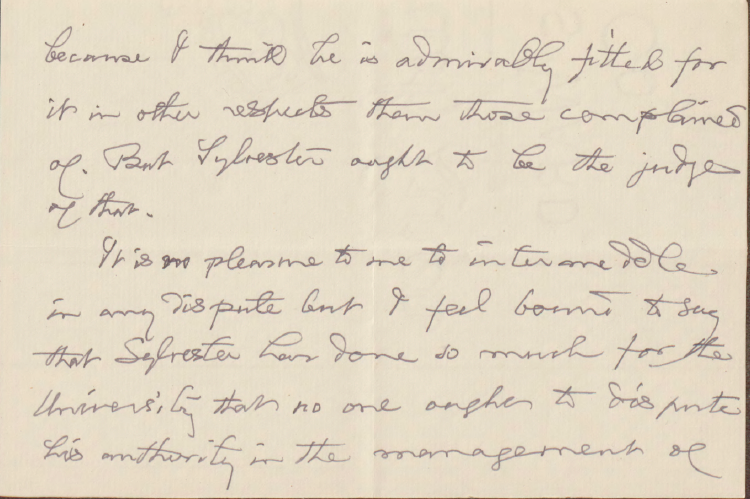 because I think he is admirably fitted for
it in other respects than those complained
of. But Sylvester ought to be the judge
of that.
It is no pleasure to me to intermeddle
in any dispute but I feel bound to say
that Sylvester has done so much for the
University that no one ought to dispute
his authority in the management of